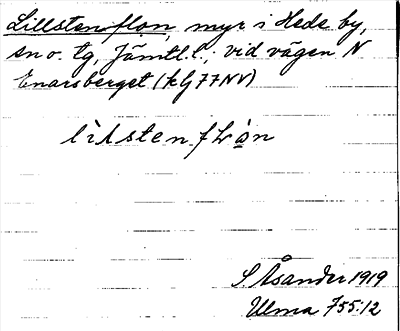 Lillstenflon, myr i Hede by,
sn o. tg, Jämtl. l., vid vägen N
Enarsberget (kg 77 NV)
lilstenflån
S Åsander 1919
Ulma 755:12